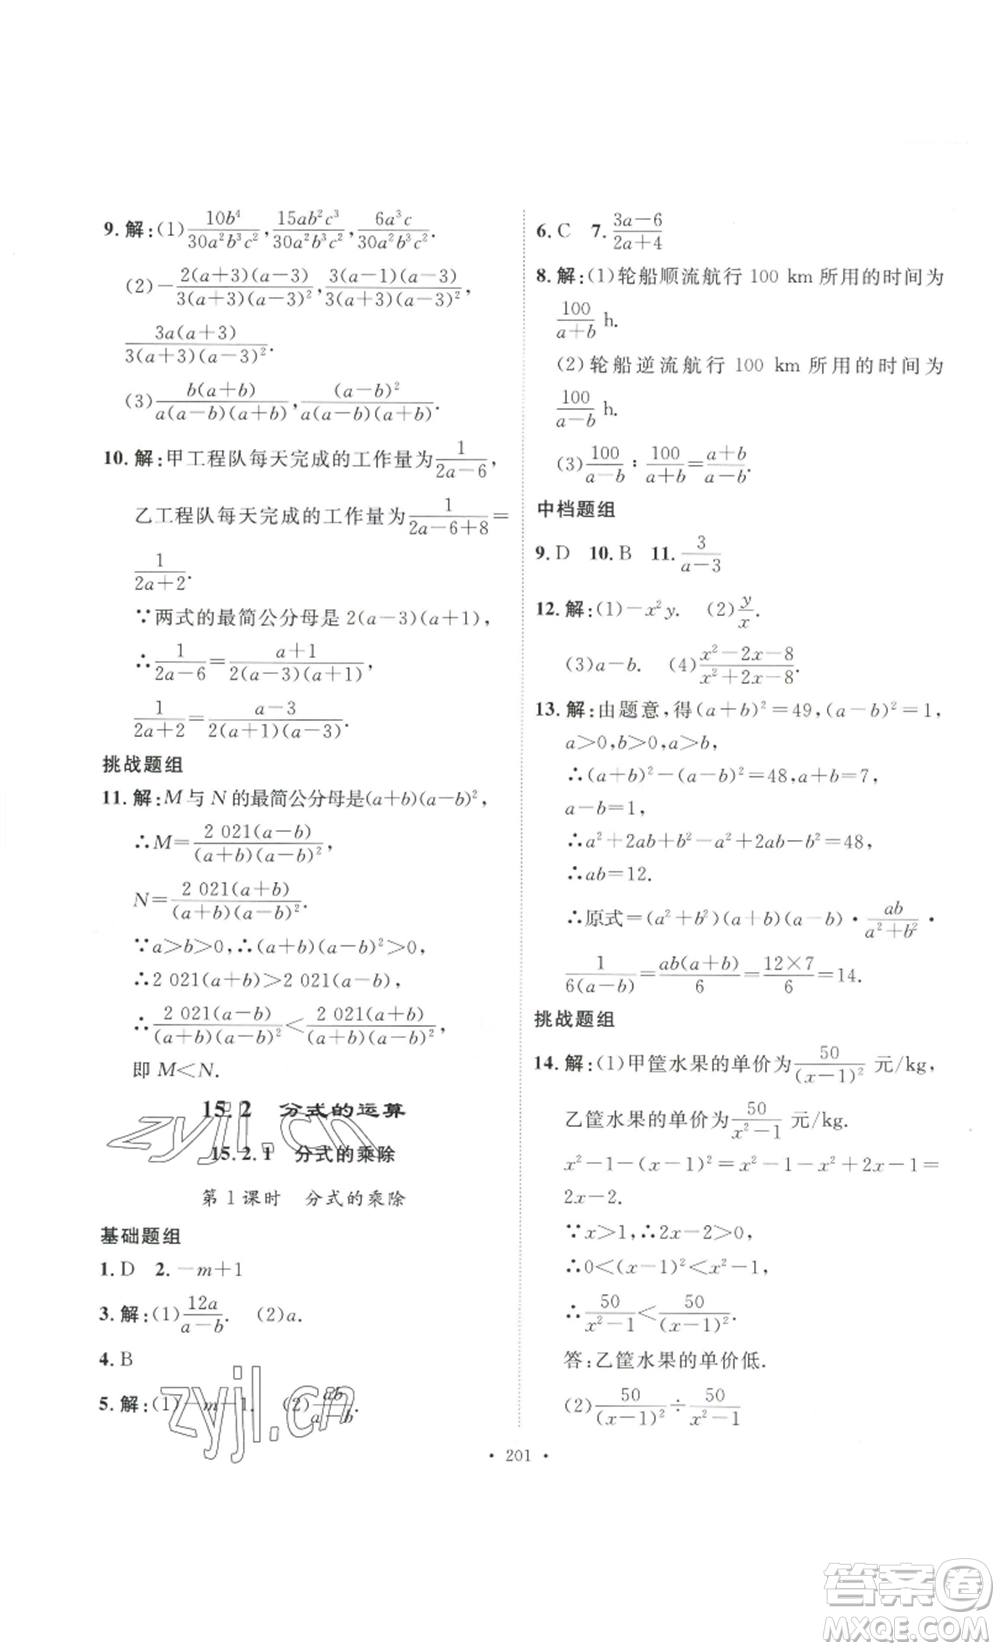 9. 解:(1) 10b⁴/(30a²b³c²), 15ab²c³/(30a²b³c²), 6a³c/(30a²b³c²).
(2) −2(a+3)(a−3)/(3(a+3)(a−3)²), 3(a−1)(a−3)/(3(a+3)(a−3)²),
3a(a+3)/(3(a+3)(a−3)²).
(3) b(a+b)/(a(a−b)(a+b)), (a−b)²/(a(a−b)(a+b)).
10. 解:甲工程队每天完成的工作量为 1/(2a−6),
乙工程队每天完成的工作量为 1/(2a−6+8)=
1/(2a+2).
∵两式的最简公分母是 2(a−3)(a+1),
∴1/(2a−6)=(a+1)/(2(a−3)(a+1)),
1/(2a+2)=(a−3)/(2(a+1)(a−3)).
挑战题组
11. 解:M 与 N 的最简公分母是(a+b)(a−b)²,
∴M=2 021(a−b)/((a+b)(a−b)²),
N=2 021(a+b)/((a+b)(a−b)²).
∵a>b>0,∴(a+b)(a−b)²>0,
∴2 021(a+b)>2 021(a−b),
∴2 021(a−b)/((a+b)(a−b)²)<2 021(a+b)/((a+b)(a−b)²),
即 M<N.
15.2 分式的运算
15.2.1 分式的乘除
第 1 课时 分式的乘除
基础题组
1. D 2. −m+1
3. 解:(1) 12a/(a−b). (2)a.
4. B
5. 解:(1)−m−1. (2) ab/(a−b).
6. C 7. (3a−6)/(2a+4)
8. 解:(1)轮船顺流航行 100 km 所用的时间为
100/(a+b) h.
(2)轮船逆流航行 100 km 所用的时间为
100/(a−b) h.
(3) 100/(a−b) : 100/(a+b)=(a+b)/(a−b).
中档题组
9. D 10. B 11. 3/(a−3)
12. 解:(1)−x²y. (2) y/x.
(3)a−b. (4) (x²−2x−8)/(x²+2x−8).
13. 解:由题意,得(a+b)²=49,(a−b)²=1,
a>0,b>0,a>b,
∴(a+b)²−(a−b)²=48,a+b=7,
a−b=1,
∴a²+2ab+b²−a²+2ab−b²=48,
∴ab=12.
∴原式=(a²+b²)(a+b)(a−b)·ab/(a²+b²)·
1/(6(a−b))=ab(a+b)/6=12×7/6=14.
挑战题组
14. 解:(1)甲筐水果的单价为 50/(x−1)² 元/kg,
乙筐水果的单价为 50/(x²−1) 元/kg.
x²−1−(x−1)²=x²−1−x²+2x−1=
2x−2.
∵x>1,∴2x−2>0,
∴0<(x−1)²<x²−1,
∴50/(x²−1)<50/(x−1)².
答:乙筐水果的单价低.
(2) 50/(x−1)²÷50/(x²−1)
· 201 ·
zyjl.cn
zyjl.cn
答案圈
MXQE.COM